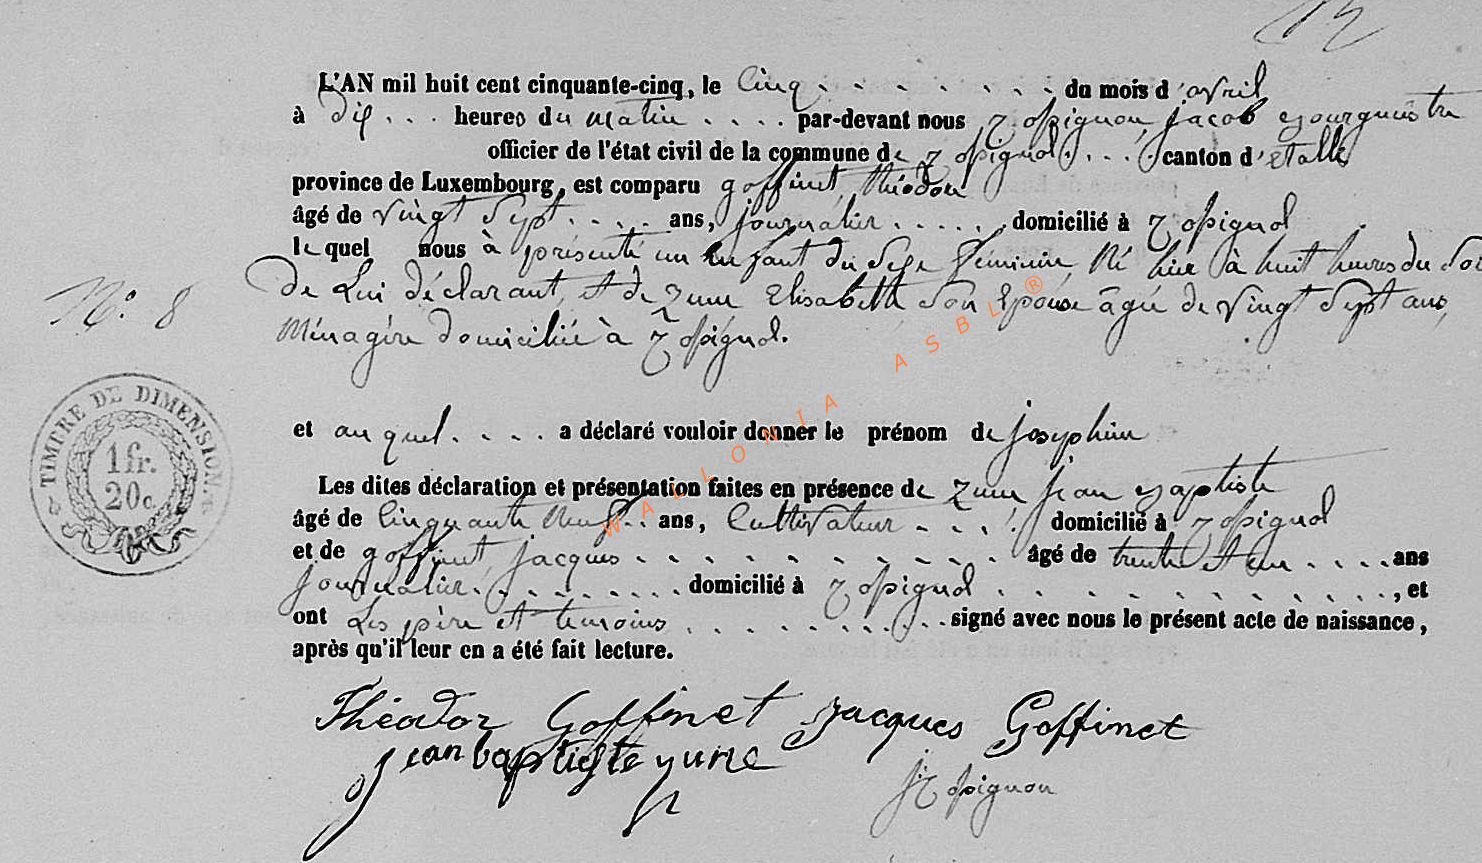 12
L'AN mil huit cent cinquante-cinq, le Cinq . . . . . . . . du mois d'avril
à dix . . . heures du matin . . . . par-devant nous Rossignon, jacob Bourguestre
officier de l'état civil de la commune de Rossignol . . . . canton d'Etalle
province de Luxembourg, est comparu goffinet, théodore
âgé de vingt Sept . . . . ans, journalier . . . . . domicilié à Rossignol
le quel nous à présenté un Enfant du Sexe féminin, Né hier à huit heures du Soir
De Lui déclarant, et de Zune Elisabeth Son Epouse âgée de vingt Sept ans,
No. 8
Ménagère domiciliée à Rossignol.
TIMBRE DE DIMENSION.
1 fr.
20 c.
et au quel . . . . a déclaré vouloir donner le prénom de josephine
Les dites déclaration et présentation faites en présence de Zune jean Baptiste
âgé de Cinquante Neuf . . ans, Cultivateur . . . . domicilié à Rossignol
et de goffinet, jacques . . . . . . . . . . . âgé de trente et un . . . . ans
journalier . . . . . . . . domicilié à Rossignol . . . . . . . . . . . , et
ont Les père et temoins . . . . . . . . . signé avec nous le présent acte de naissance,
après qu'il leur en a été fait lecture.
Théodor Goffinet Jacques Goffinet
jean baptiste zune
J Rossignon
WALLONIA ASBL ®